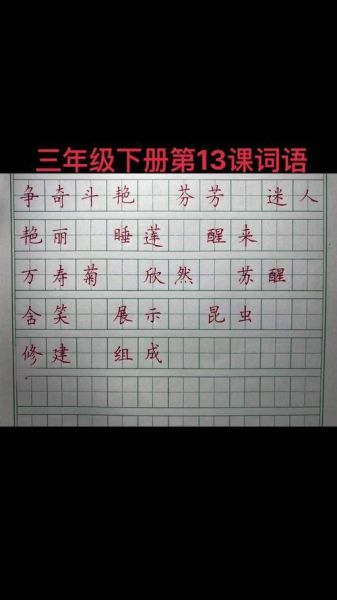 三年级下册第13课词语
争奇斗艳 芬芳 迷人
艳丽 睡莲 醒来
万寿菊 欣然 苏醒
含笑 展示 昆虫
修建 组成